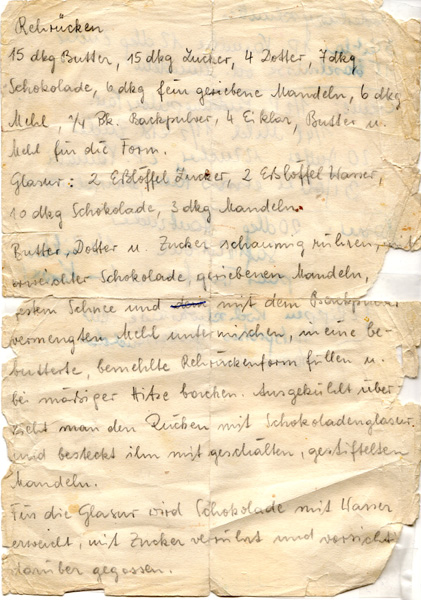 Rehrücken
15 dkg Butter, 15 dkg Zucker, 4 Dotter, 7 dkg
Schokolade, 6 dkg fein geriebene Mandeln, 6 dkg
Mehl, Pk. Backpulver, 4 Eiklar, Butter u.
Mehl für die Form.
Glasur: 2 Eßlöffel Zucker, 2 Eßlöffel Wasser,
10 dkg Schokolade, 3 dkg Mandeln.
Butter, Dotter u. Zucker schaumig rühren, mit
erweichter Schokolade, geriebenen Mandeln,
festem Schnee und mit dem Backpulver
vermengten Mehl untermischen, in eine be-
butterte, bemehlte Rehrückenform füllen u.
bei mäßiger Hitze backen. Ausgekühlt über-
zieht man den Rücken mit Schokoladenglasur
und besteckt ihn mit geschälten, gestiftelten
Mandeln.
Für die Glasur wird Schokolade mit Wasser
erweicht, mit Zucker verrührt und vorsicht
darüber gegossen.